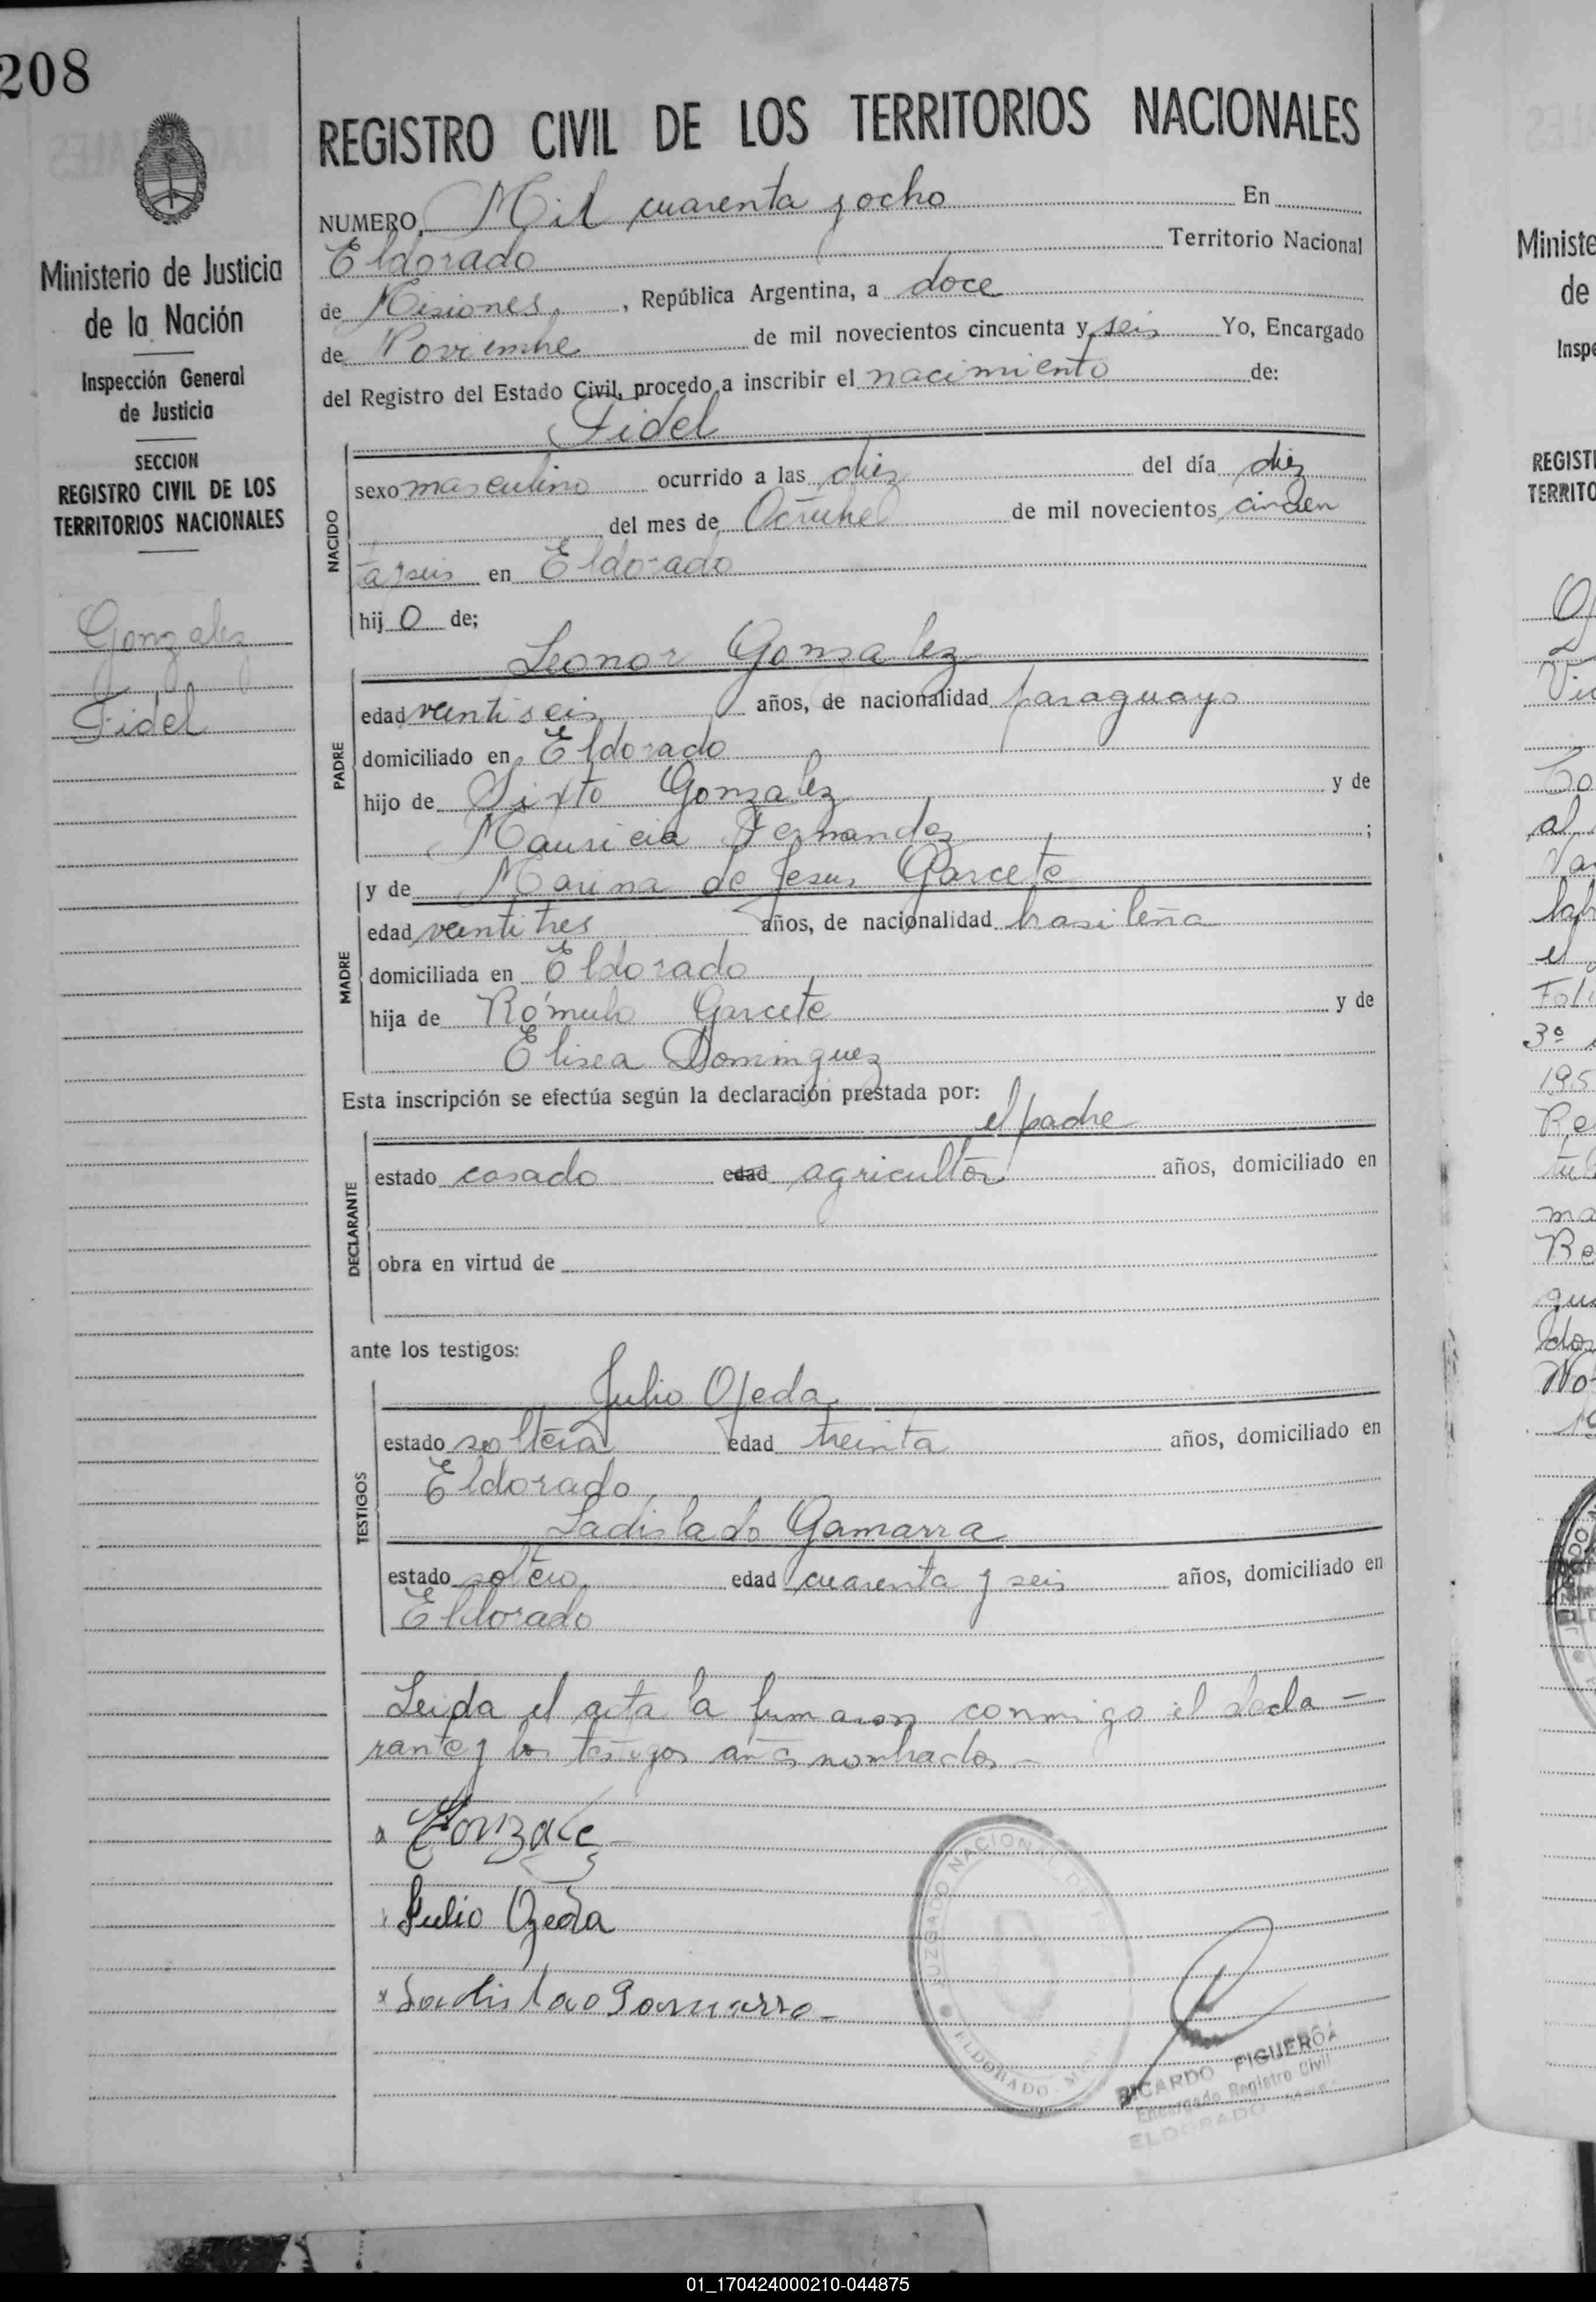 208
REGISTRO CIVIL DE LOS TERRITORIOS NACIONALES
Ministerio de Justicia
de la Nación
Inspección General
de Justicia
SECCION
REGISTRO CIVIL DE LOS
TERRITORIOS NACIONALES
Gonzalez
Fidel
NUMERO Mil cuarenta y ocho En
Eldorado Territorio Nacional
de Misiones, República Argentina, a doce
de Noviembre de mil novecientos cincuenta y seis Yo, Encargado
del Registro del Estado Civil, procedo a inscribir el nacimiento de:
Fidel
NACIDO
sexo masculino ocurrido a las diez del día diez
del mes de Octubre de mil novecientos cincuen
ta y seis en Eldorado
hij o de;
Leonor Gonzalez
PADRE
edad veintiseis años, de nacionalidad paraguayo
domiciliado en Eldorado
hijo de Sixto Gonzalez y de
Mauricia Fernandez ;
y de Marina de Jesus Garcete
MADRE
edad veintitres años, de nacionalidad brasileña
domiciliada en Eldorado
hija de Rómulo Garcete y de
Elisea Dominguez
Esta inscripción se efectúa según la declaración prestada por:
el padre
DECLARANTE
estado casado edad agricultor años, domiciliado en
obra en virtud de
ante los testigos:
Julio Ojeda
TESTIGOS
estado soltero edad treinta años, domiciliado en
Eldorado
Ladislado Gamarra
estado soltero edad cuarenta y seis años, domiciliado en
Eldorado
Leida el acta la firmaron conmigo el decla-
rante y los testigos antes nombrados-
x Gonzalez
Julio Ojeda
x Ladislao Gamarra-
JUZGADO NACIONAL DE
ELDORADO
RICARDO FIGUEROA
Encargado Registro Civil
ELDORADO
Ministe
de
Inspe
REGISTR
TERRITO
al
el
3º
195
Re
ma
Re
01_170424000210-044875